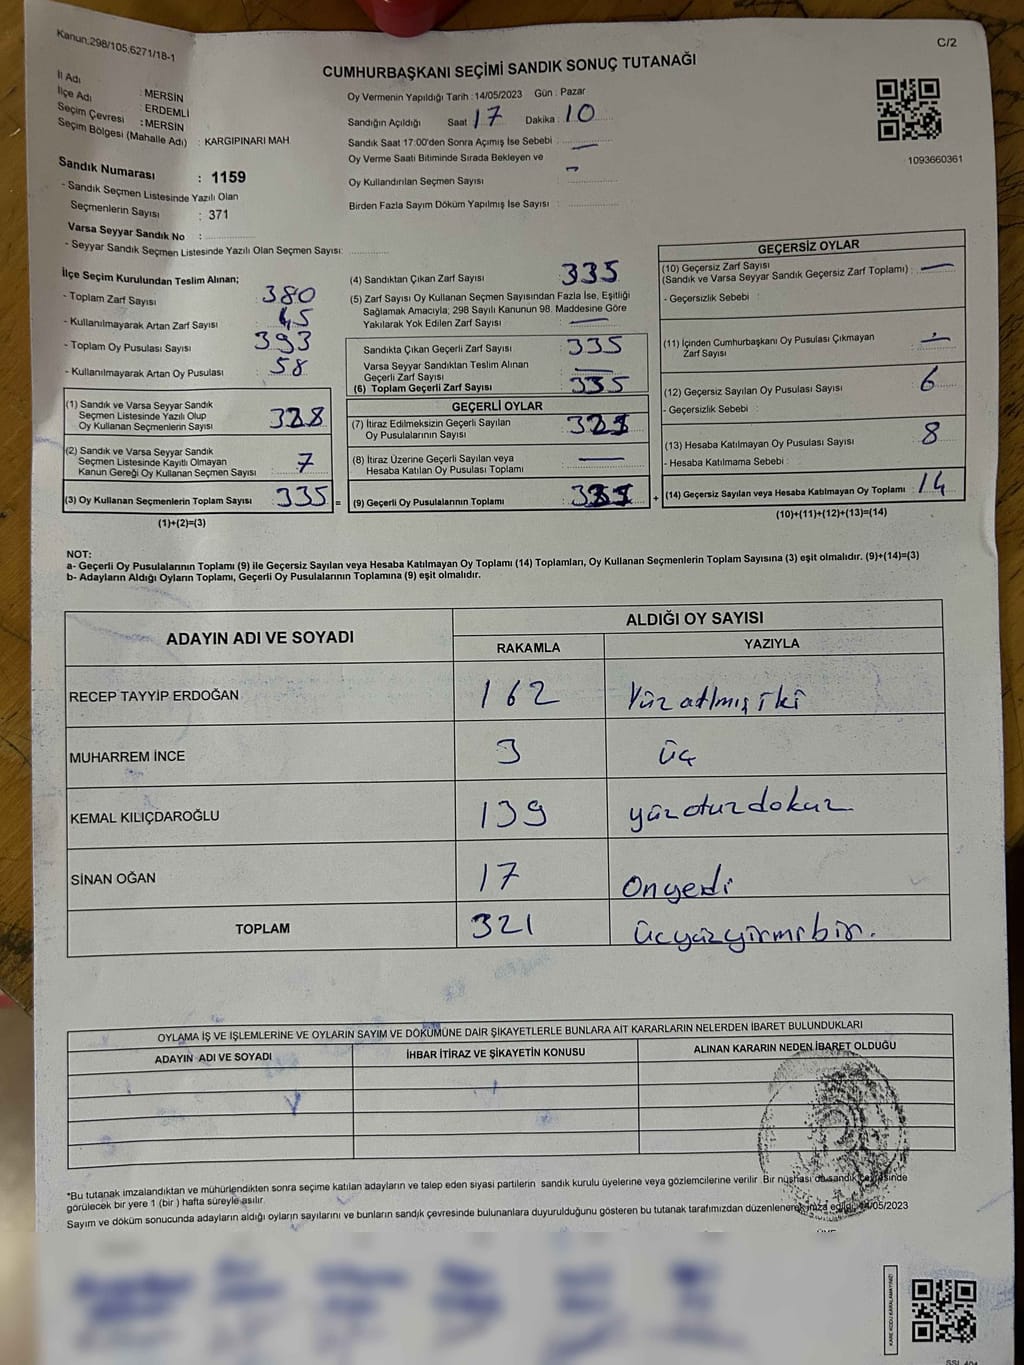 Kanun:298/105;6271/18-1
C/2
CUMHURBAŞKANI SEÇİMİ SANDIK SONUÇ TUTANAĞI
İl Adı : MERSİN
İlçe Adı : ERDEMLİ
Seçim Çevresi : MERSİN
Seçim Bölgesi (Mahalle Adı) : KARGIPINARI MAH.
Oy Vermenin Yapıldığı Tarih : 14/05/2023 Gün : Pazar
Sandığın Açıldığı Saat 17 Dakika : 10
Sandık Saat 17:00'den Sonra Açımış İse Sebebi : —
Oy Verme Saati Bitiminde Sırada Bekleyen ve
Oy Kullandırılan Seçmen Sayısı :
Birden Fazla Sayım Döküm Yapılmış İse Sayısı :
1093660361
Sandık Numarası : 1159
- Sandık Seçmen Listesinde Yazılı Olan
Seçmenlerin Sayısı : 371
Varsa Seyyar Sandık No :
- Seyyar Sandık Seçmen Listesinde Yazılı Olan Seçmen Sayısı:
İlçe Seçim Kurulundan Teslim Alınan;
- Toplam Zarf Sayısı 380
- Kullanılmayarak Artan Zarf Sayısı 45
- Toplam Oy Pusulası Sayısı 393
- Kullanılmayarak Artan Oy Pusulası 58
(1) Sandık ve Varsa Seyyar Sandık
Seçmen Listesinde Yazılı Olup
Oy Kullanan Seçmenlerin Sayısı 328
(2) Sandık ve Varsa Seyyar Sandık
Seçmen Listesinde Kayıtlı Olmayan
Kanun Gereği Oy Kullanan Seçmen Sayısı 7
(3) Oy Kullanan Seçmenlerin Toplam Sayısı 335 =
(1)+(2)=(3)
(4) Sandıktan Çıkan Zarf Sayısı : 335
(5) Zarf Sayısı Oy Kullanan Seçmen Sayısından Fazla İse, Eşitliği
Sağlamak Amacıyla; 298 Sayılı Kanunun 98. Maddesine Göre
Yakılarak Yok Edilen Zarf Sayısı : —
Sandıkta Çıkan Geçerli Zarf Sayısı : 335
Varsa Seyyar Sandıktan Teslim Alınan
Geçerli Zarf Sayısı : —
(6) Toplam Geçerli Zarf Sayısı : 335
GEÇERLİ OYLAR
(7) İtiraz Edilmeksizin Geçerli Sayılan
Oy Pusulalarının Sayısı :
(8) İtiraz Üzerine Geçerli Sayılan veya
Hesaba Katılan Oy Pusulası Toplamı : —
(9) Geçerli Oy Pusulalarının Toplamı : +
GEÇERSİZ OYLAR
(10) Geçersiz Zarf Sayısı
(Sandık ve Varsa Seyyar Sandık Geçersiz Zarf Toplamı) : —
- Geçersizlik Sebebi :
(11) İçinden Cumhurbaşkanı Oy Pusulası Çıkmayan
Zarf Sayısı : —
(12) Geçersiz Sayılan Oy Pusulası Sayısı : 6
- Geçersizlik Sebebi :
(13) Hesaba Katılmayan Oy Pusulası Sayısı : 8
- Hesaba Katılmama Sebebi :
(14) Geçersiz Sayılan veya Hesaba Katılmayan Oy Toplamı : 14
(10)+(11)+(12)+(13)=(14)
NOT:
a- Geçerli Oy Pusulalarının Toplamı (9) ile Geçersiz Sayılan veya Hesaba Katılmayan Oy Toplamı (14) Toplamları, Oy Kullanan Seçmenlerin Toplam Sayısına (3) eşit olmalıdır. (9)+(14)=(3)
b- Adayların Aldığı Oyların Toplamı, Geçerli Oy Pusulalarının Toplamına (9) eşit olmalıdır.
ADAYIN ADI VE SOYADI
ALDIĞI OY SAYISI
RAKAMLA YAZIYLA
RECEP TAYYİP ERDOĞAN 162 Yüz atlmış iki
MUHARREM İNCE 3 üç
KEMAL KILIÇDAROĞLU 139 yüzotuzdokuz
SİNAN OĞAN 17 Onyedi
TOPLAM 321 üçyüzyirmibir.
OYLAMA İŞ VE İŞLEMLERİNE VE OYLARIN SAYIM VE DÖKÜMÜNE DAİR ŞİKAYETLERLE BUNLARA AİT KARARLARIN NELERDEN İBARET BULUNDUKLARI
ADAYIN ADI VE SOYADI İHBAR İTİRAZ VE ŞİKAYETİN KONUSU ALINAN KARARIN NEDEN İBARET OLDUĞU
*Bu tutanak imzalandıktan ve mühürlendikten sonra seçime katılan adayların ve talep eden siyasi partilerin sandık kurulu üyelerine veya gözlemcilerine verilir. Bir nüshası da sandık çevresinde
görülecek bir yere 1 (bir ) hafta süreyle asılır.
Sayım ve döküm sonucunda adayların aldığı oyların sayılarını ve bunların sandık çevresinde bulunanlara duyurulduğunu gösteren bu tutanak tarafımızdan düzenlenerek imza edildi. 14/05/2023
KARE KODU KARALAMAYINIZ!